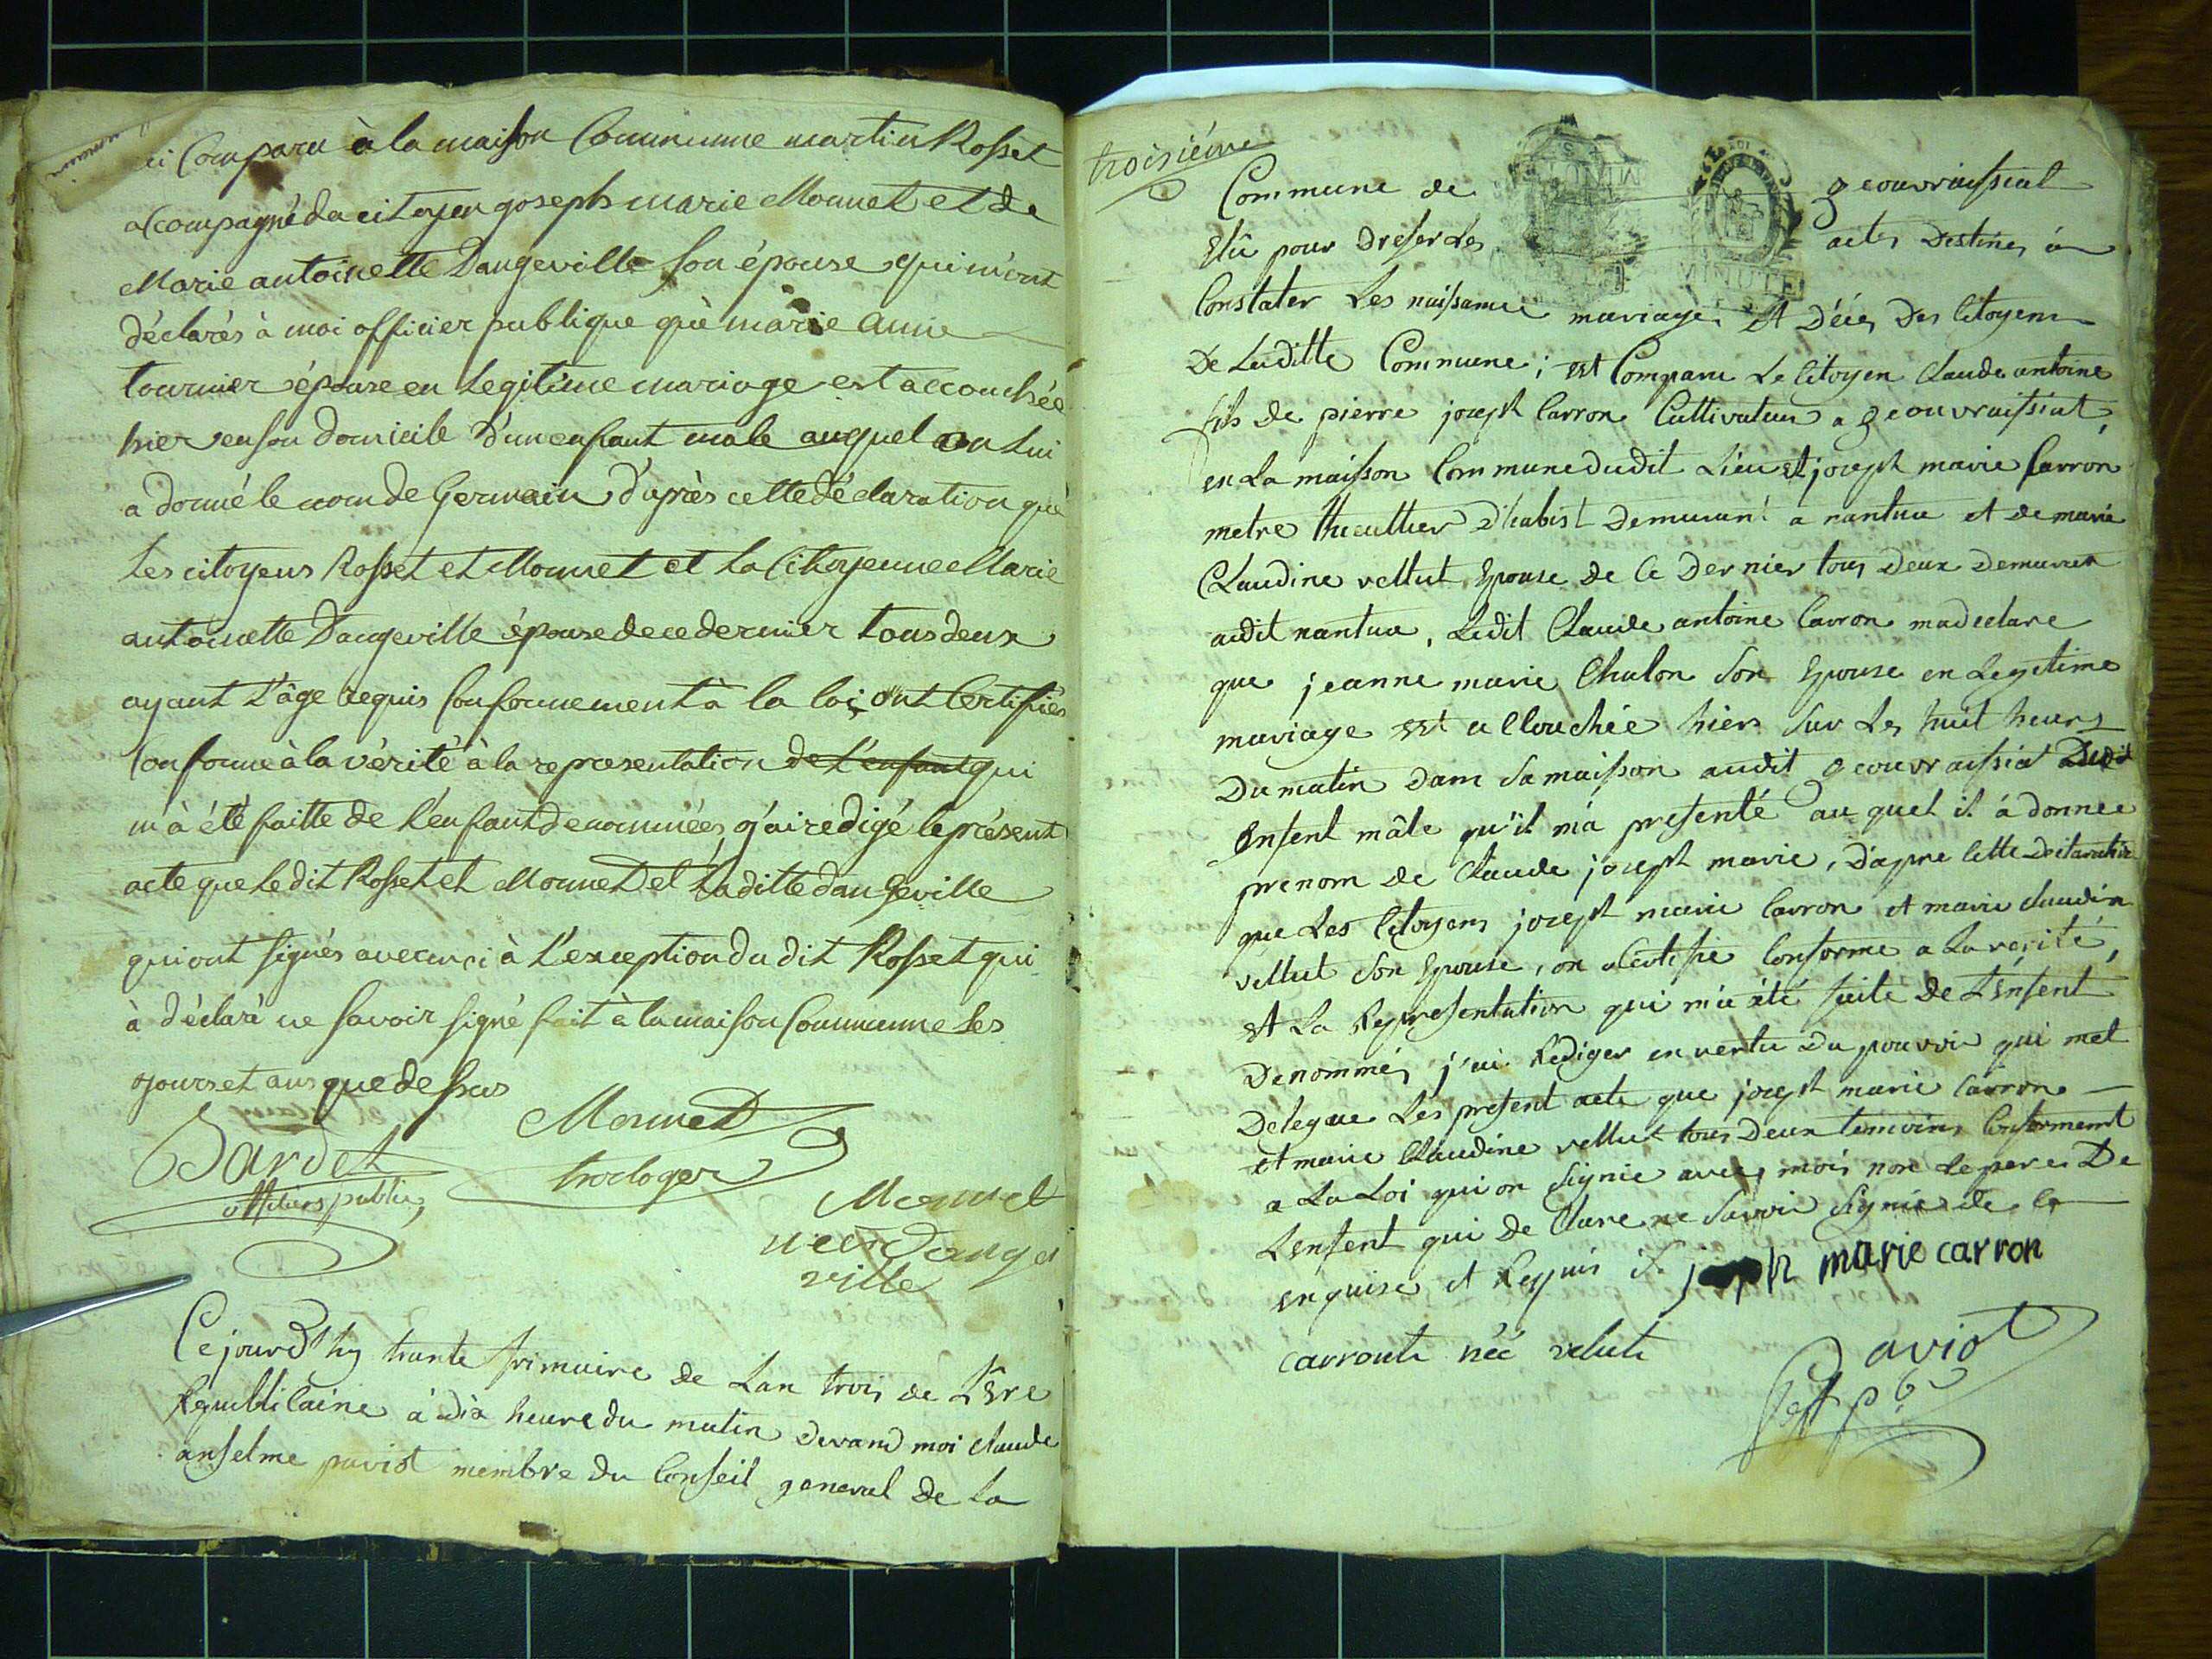 ci Comparu à la maison Communne martin Rosset
accompagné da citoyen joseph marie Monnet et de
Marie antoinette Dangeville son épouse qui m'ont
déclarés à moi officier publique què marie Anne
tournier épouse en Legitime mariage est accouchée
hier en son domicile d'un enfant male auquel on Lui
a donné le nom de Germain d'après cette déclaration què
Les citoyens Rosset et Monnet et la Citoyenne Marie
antoinette Dangeville épouse de ce dernier tous deux
ayant L'âge requis Conformement à la loi ont Certifiés
Conforme à la vérité à la representation de L'enfant qui
m'à été faitte de L'enfant denommées, j'ai redigé le présent
acte que Le dit Rosset et Monnet et La ditte dangeville
qui ont signés avec moi à L'exception du dit Rosset qui
à déclaré ne savoir signé fait à la maison Communne Les
jours et ans que dessus
Monnet
Bardet
horloger
officiers public
Monnet
née Dange
ville
Ce jourd'hy trante frimaire de Lan trois de L'Ere
Republicaine à dix heure du matin devand moi Claude
anselme paviot membre du Conseil general de La
troisiéme
Commune de geouvraissiat
Elû pour dreser Les actes Destines à
MINUTE
Constater Les naissance mariage et Décès Des Citoyens
De Laditte Commune ; est Comparu Le Citoyen Claude antoine
fils de pierre joseph Carron Cultivateur a geouvraissiat,
en La maisson Commune dudit Lieu et joseph marie Carron
metre demurant a nantua et de marie
Claudine vellut Epouse de Ce Dernier tous Deux Demurer
audit nantua, Ledit Claude antoine Carron madeclare
que jeanne marie Chalon Son Epouse en Legetime
mariage est acllouchée hier Sur Les huit heurs
Du matin dans Sa maisson audit geouvraissiat Dudit
Enfent mâle qu'il m'a presenté au quel il à donnee
prenom de Claude joseph marie, D'apre Cette declaration
que Les Citoyens joseph marie Carron et marie claudin
vellut Son Epouse, on Certifie Conforme a La verité,
et La Representation qui m'a été faite de L'Enfent
Denommés j'ai Rédiger en vertu Du pouvoir qui met
Delegue Les present acte que joseph marie Carron
et marie Claudine vellut tous Deux temoins Conformemt
a La Loi qui on Signie avec mois non Le pere De
L'enfent qui de Clare ne Savoir Signie de Ce
enquise et Requis joseph marie carron
carronte néé velute
Paviot